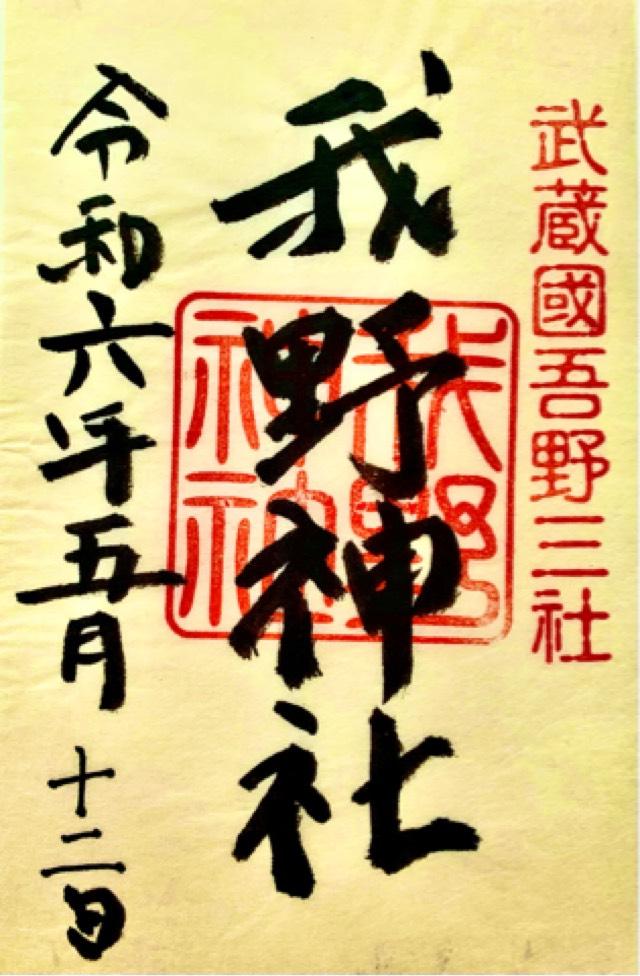 武蔵國吾野三社
我野神社
我野神社
令和六年五月十二日